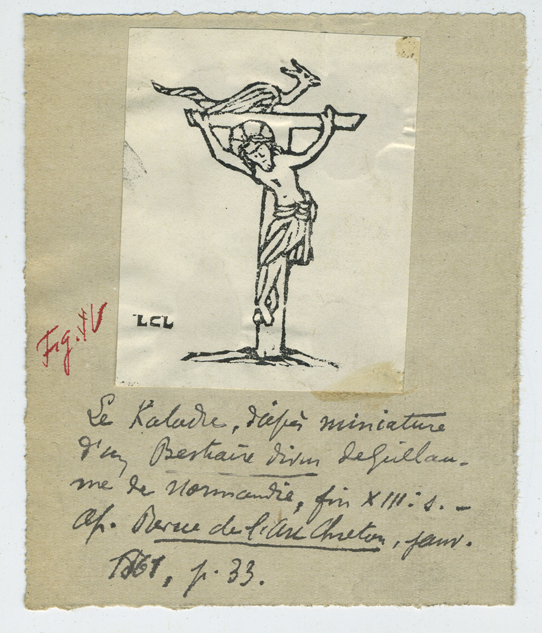 LCL
Fig. IV
Le Kaladre, d'après miniature
d'un Bestiaire divin de Guillau-
me de Normandie, fin XIII: s. -
Ap. Revue de l'Art Chretien, janv.
p. 33.